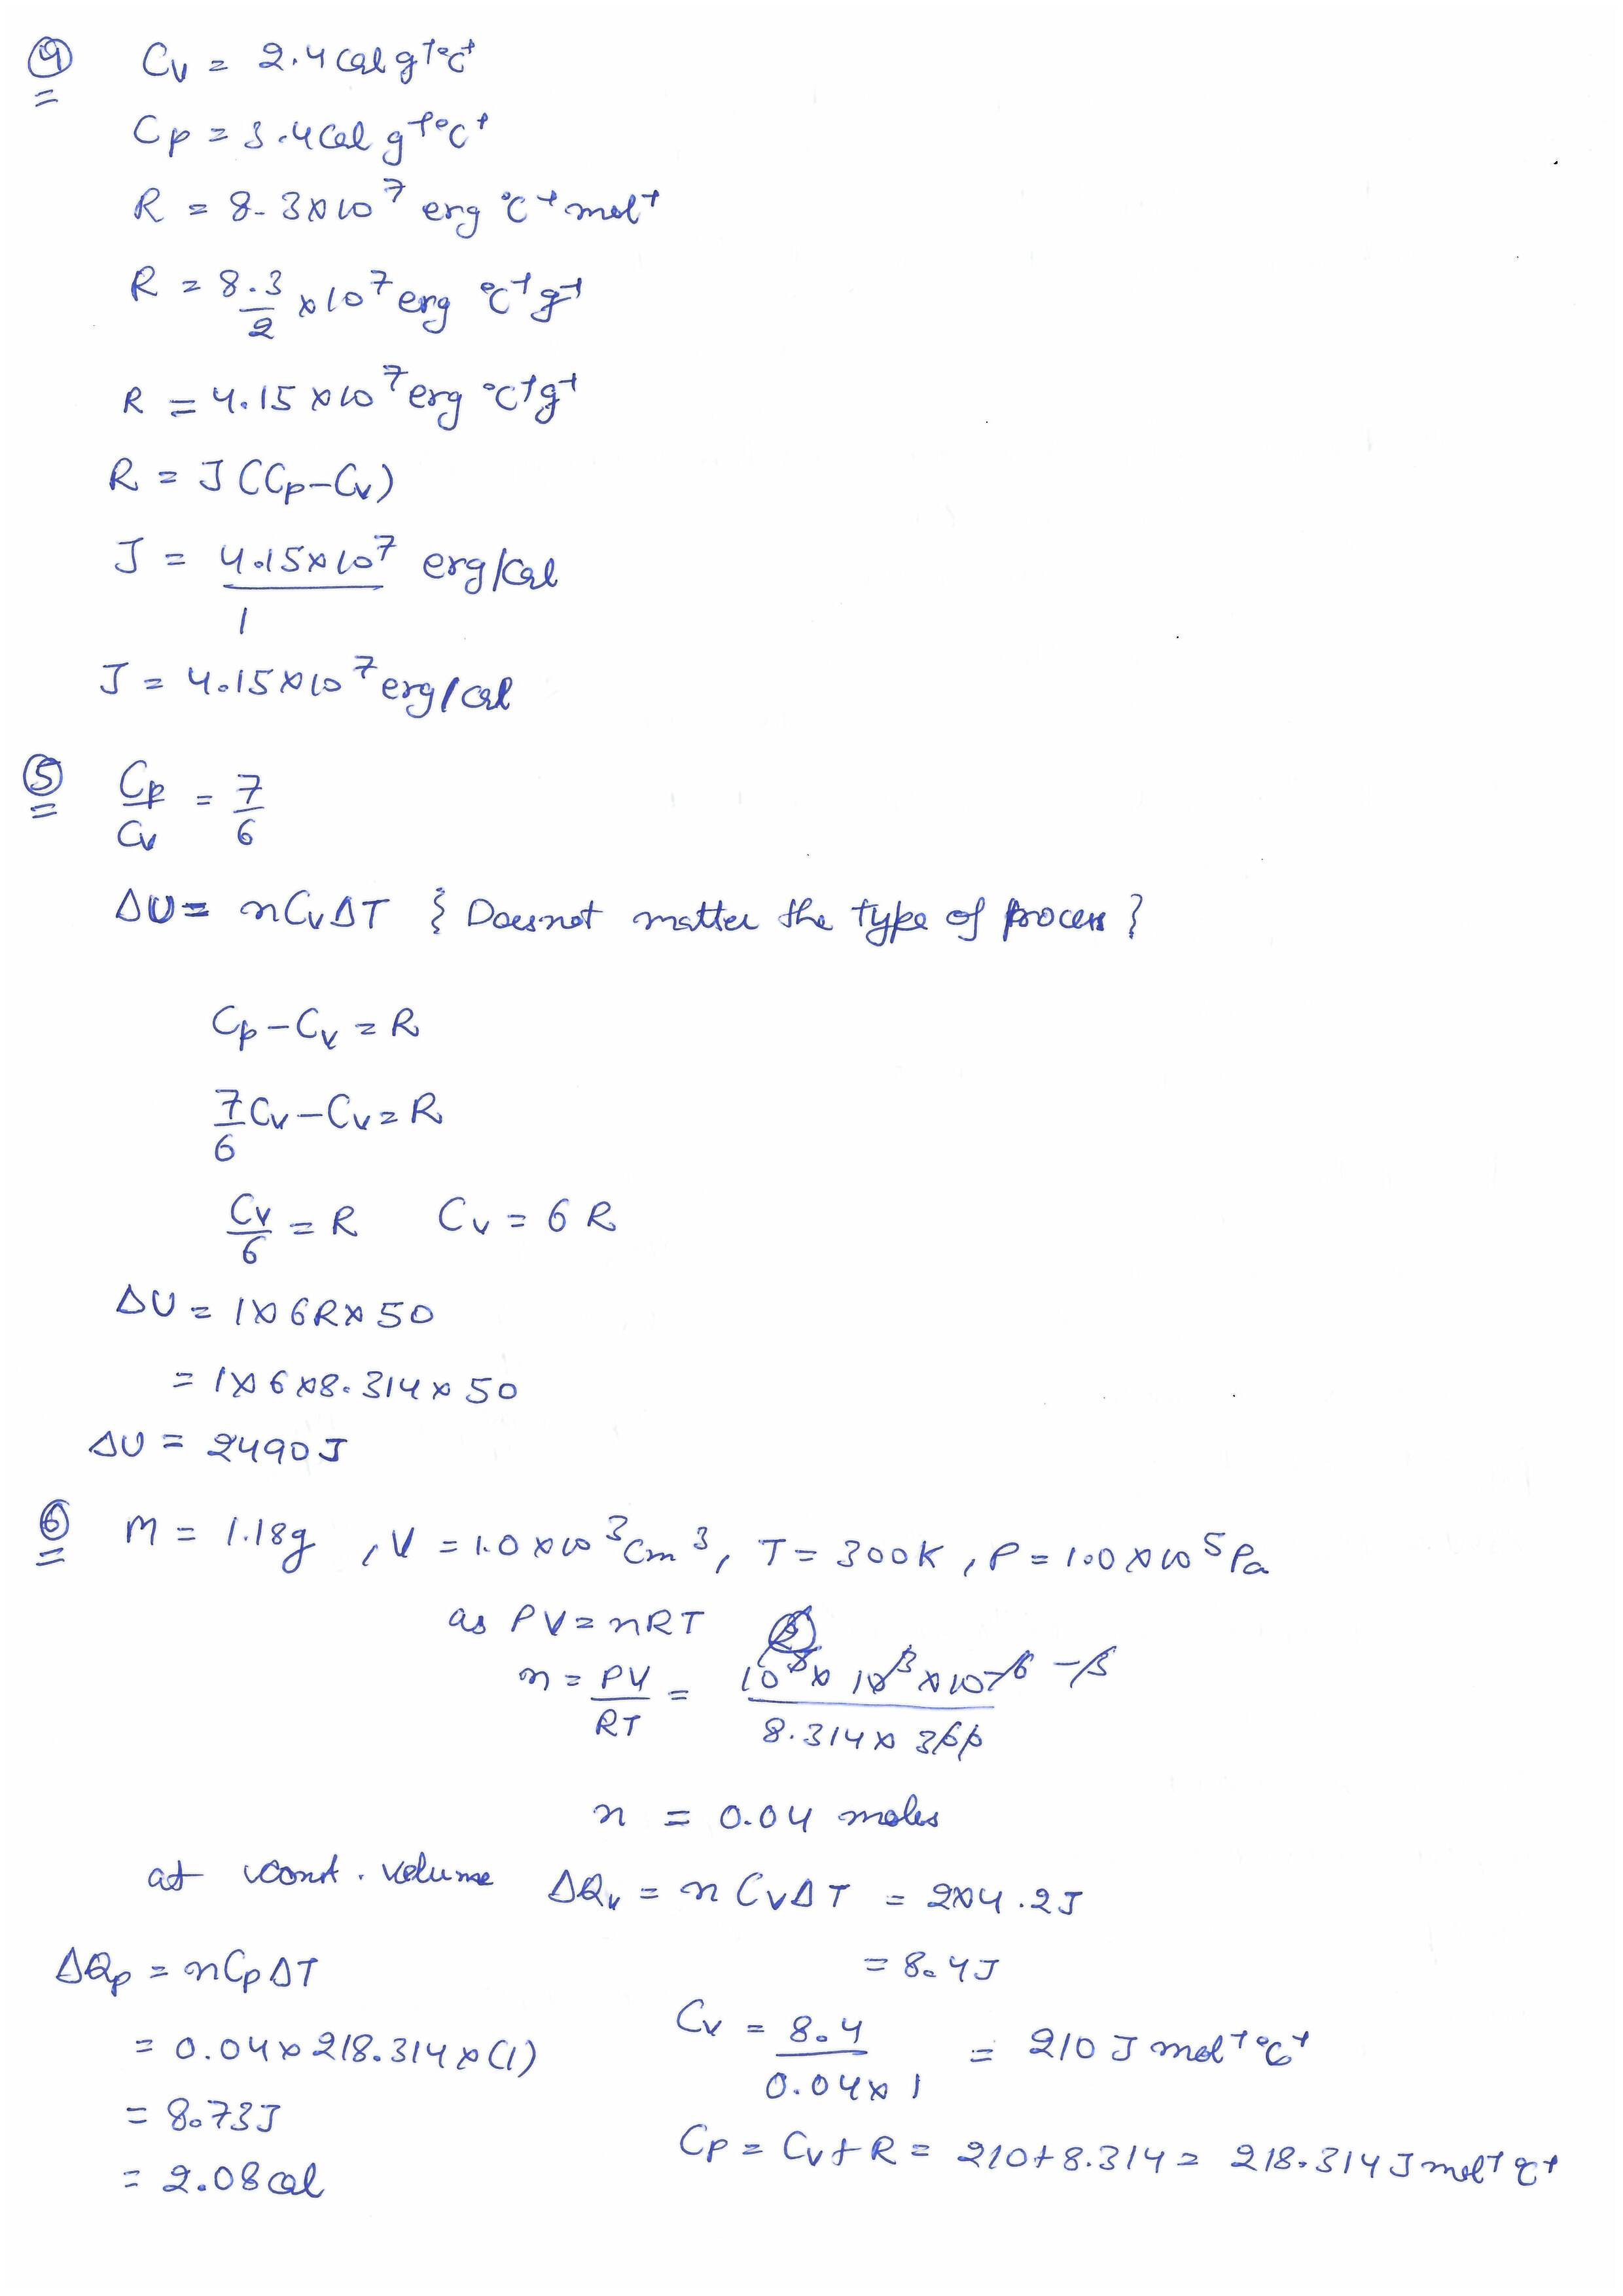 ④ Cv = 2.4 Cal g⁻¹°C⁻¹
Cp = 3.4 Cal g⁻¹°C⁻¹
R = 8.3×10⁷ erg °C⁻¹ mol⁻¹
R = 8.3/2 ×10⁷ erg °C⁻¹ g⁻¹
R = 4.15×10⁷ erg °C⁻¹ g⁻¹
R = J (Cp-Cv)
J = 4.15×10⁷/1 erg/Cal
J = 4.15×10⁷ erg/cal
⑤ Cp/Cv = 7/6
ΔU = nCvΔT { Doesnot matter the type of process }
Cp-Cv = R
7/6 Cv-Cv = R
Cv/6 = R Cv = 6 R
ΔU = 1×6R×50
= 1×6×8.314×50
ΔU = 2490J
⑥ m = 1.18g, V = 1.0×10³cm³, T = 300K, P = 1.0×10⁵Pa
as PV = nRT
n = PV/RT = 10⁵×10³×10⁻⁶ ⁻³/8.314×300
n = 0.04 moles
at const. volume ΔQv = n CvΔT = 2×4.2J
= 8.4J
Cv = 8.4/0.04×1 = 210 J mol⁻¹°C⁻¹
Cp = Cv+R = 210+8.314 = 218.314 J mol⁻¹ °C⁻¹
ΔQp = nCpΔT
= 0.04×218.314×(1)
= 8.73J
= 2.08cal